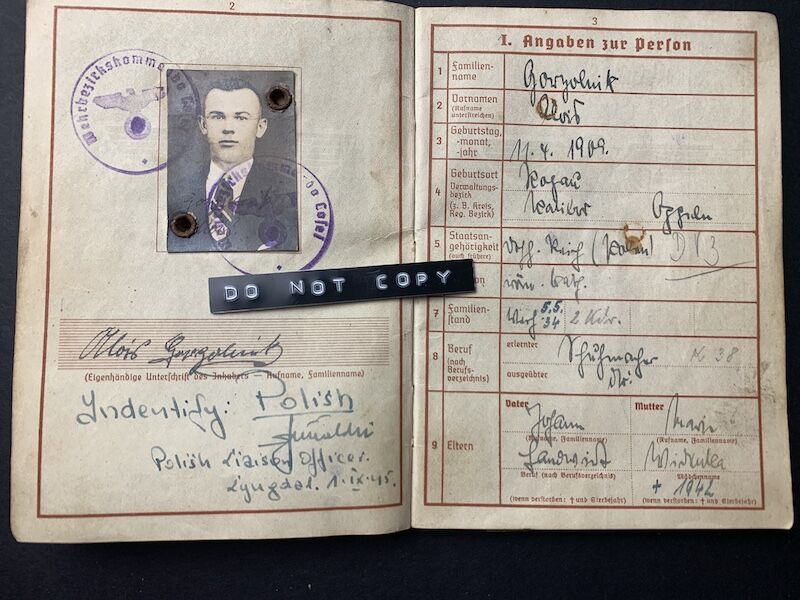 2
Wehrbezirkskommando Cosel
DO NOT COPY
Alois Gorzolnik
(Eigenhändige Unterschrift des Inhabers — Rufname, Familienname)
Yndentify: Polish
Polish Liaison Officer.
Lyngdal. 1.IX.45.
3
I. Angaben zur Person
1 Familien-
name
Gorzolnik
2 Vornamen
(Rufname
unterstreichen)
Alois
3 Geburtstag,
-monat,
-jahr
11. 4. 1909.
4 Geburtsort
Verwaltungs-
bezirk
(z. B. Kreis,
Reg. Bezirk)
Rogau
Ratibor Oppeln
5 Staatsan-
gehörigkeit
(auch frühere)
Dtsch. Reich (Polen) DV3
röm. kath.
7 Familien-
stand
verh. 5.5.
34 2 Kdr.
8 Beruf
(nach
Berufs-
verzeichnis)
erlernter
Schuhmacher
ausgeübter
9 Eltern
Vater
Johann
(Rufname, Familienname)
Landwirt
Beruf (nach Berufsverzeichnis)
(wenn verstorben: † und Sterbejahr)
Mutter
Marie
(Rufname, Familienname)
Mädchenname
+ 1942
(wenn verstorben: † und Sterbejahr)